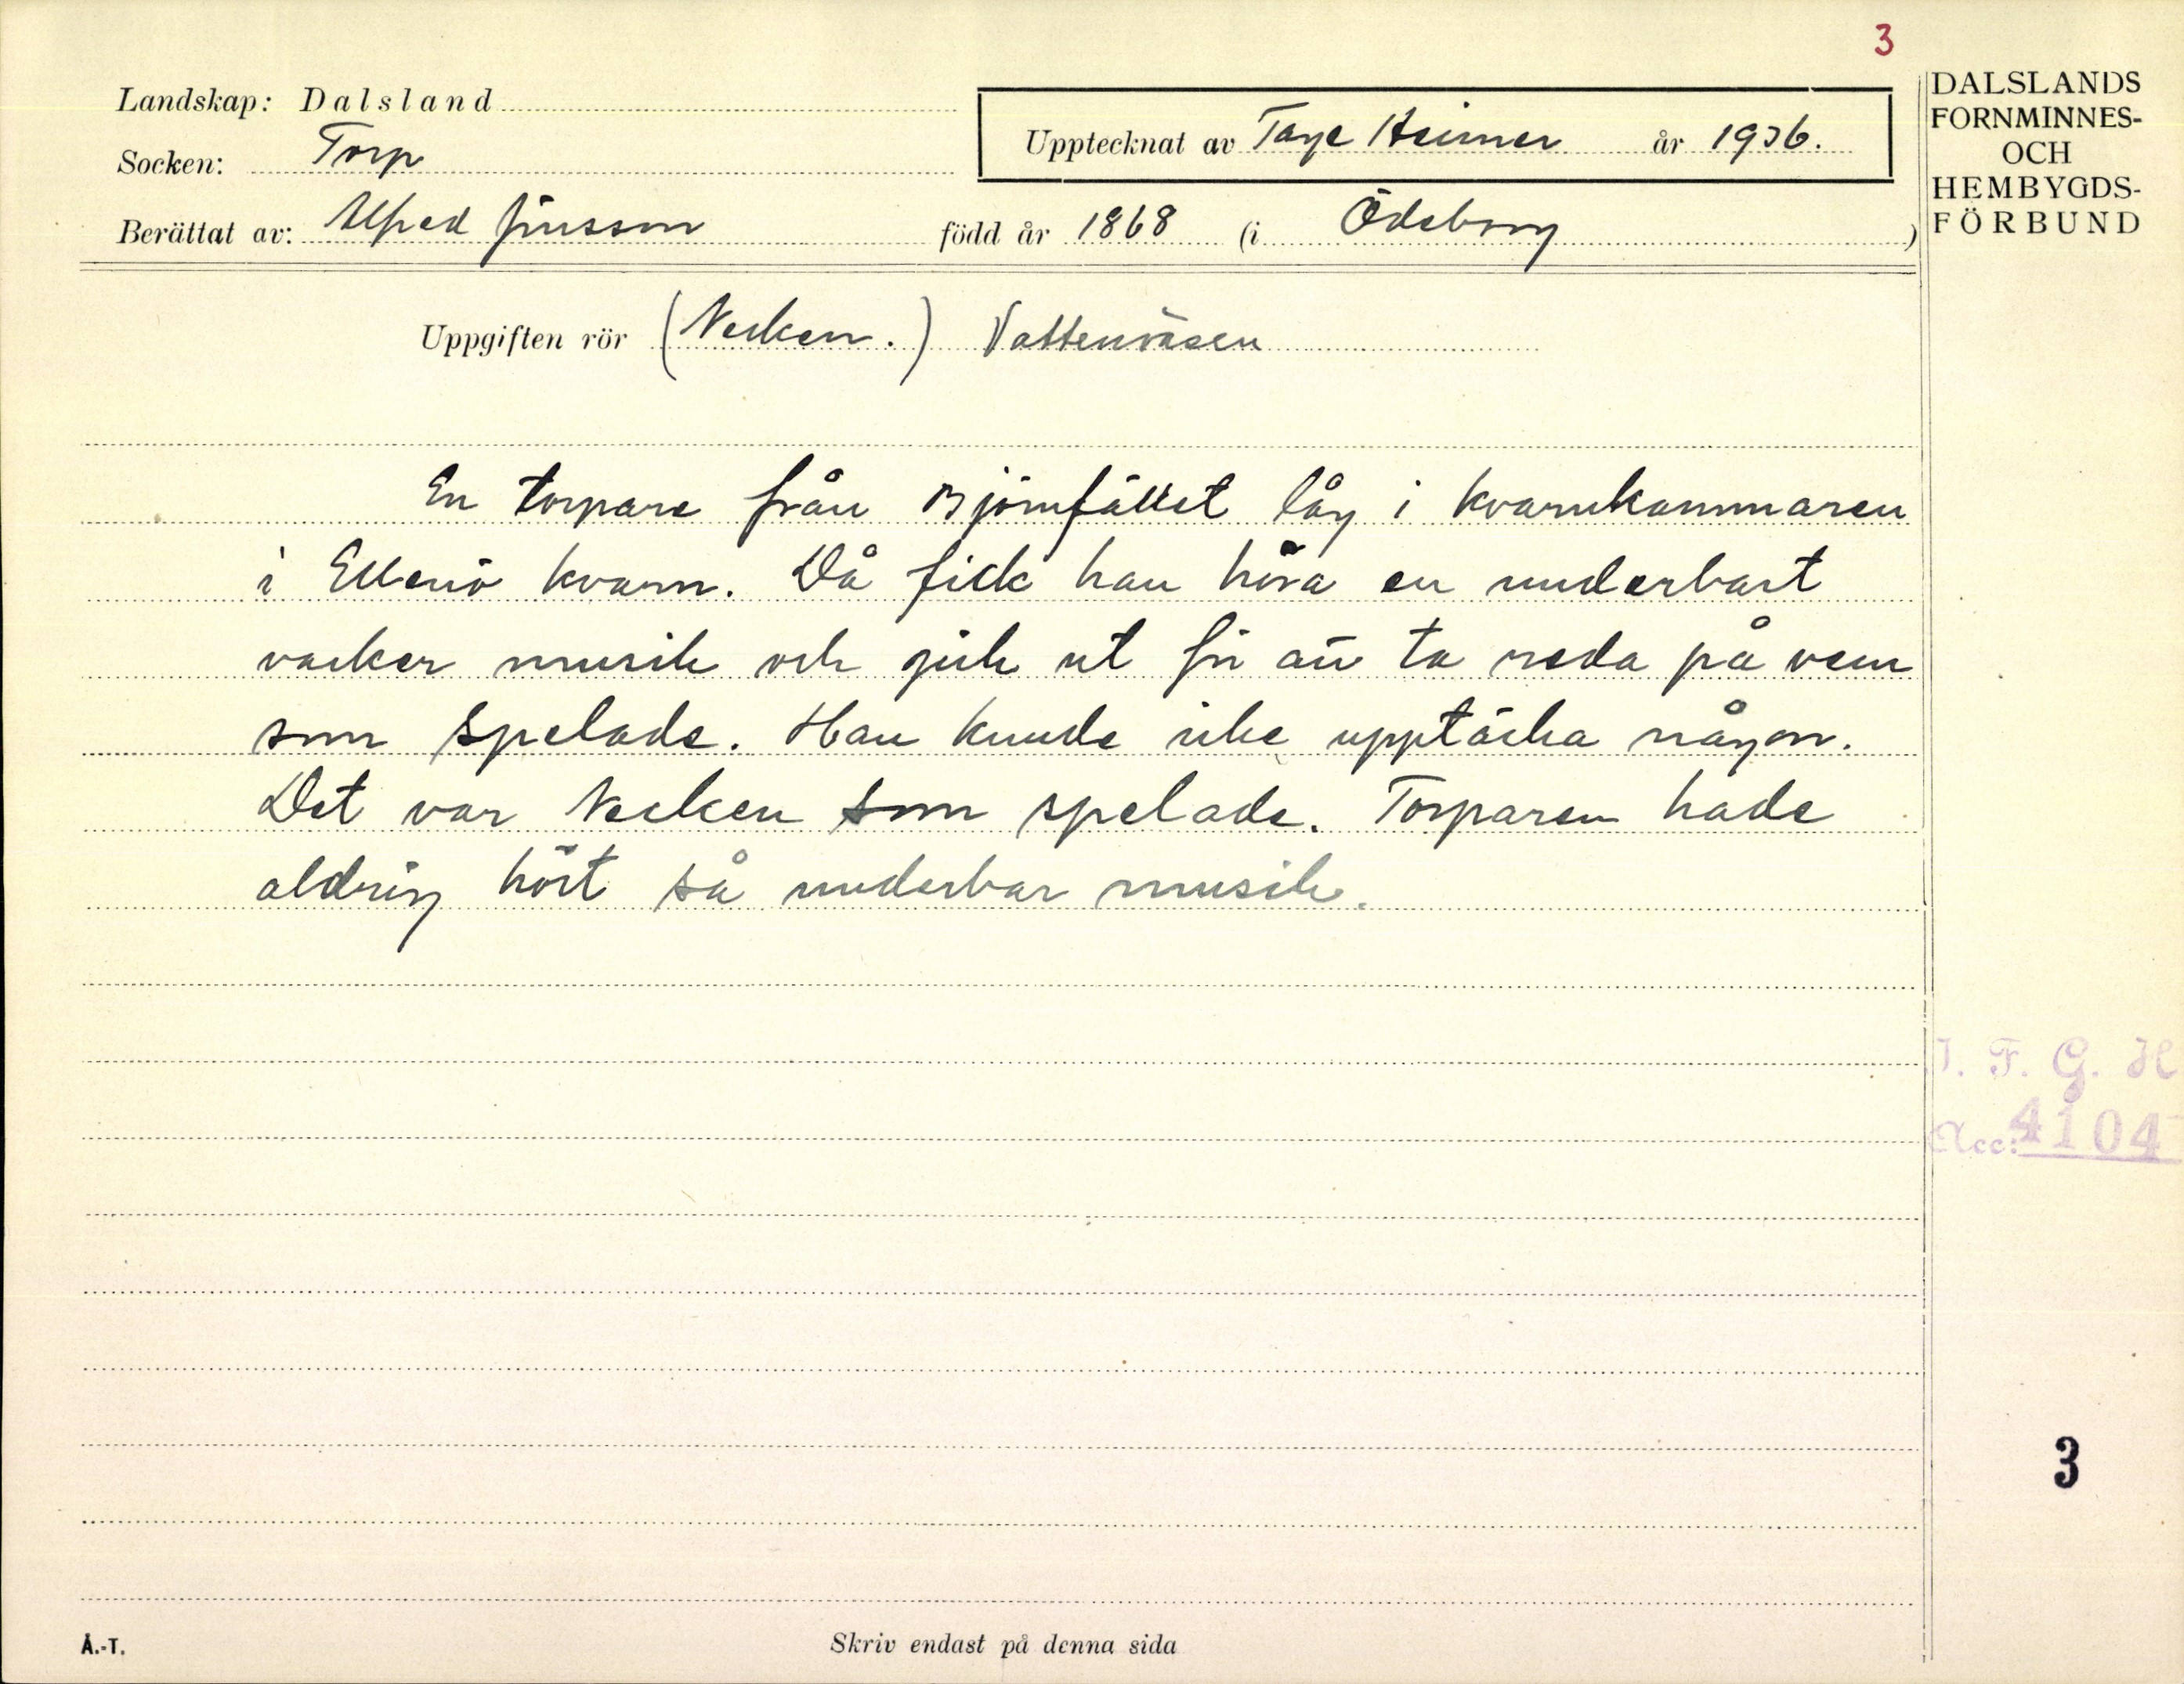 3
Landskap: Dalsland
Socken: Torp
Upptecknat av Tage Heimer år 1936.
Berättat av: Alfred Jönsson född år 1868 (i Ödeborg)
DALSLANDS
FORNMINNES-
OCH
HEMBYGDS-
FÖRBUND
Uppgiften rör (Necken.) Vattenväsen
En torpare från Björnfället låg i kvarnkammaren
i Ellenö kvarn. Då fick han höra en underbart
vacker musik och gick ut för att ta reda på vem
som spelade. Han kunde icke upptäcka någon.
Det var Necken som spelade. Torparen hade
aldrig hört så underbar musik.
I. F. G. H
Acc: 4104
3
Å.-T.
Skriv endast på denna sida